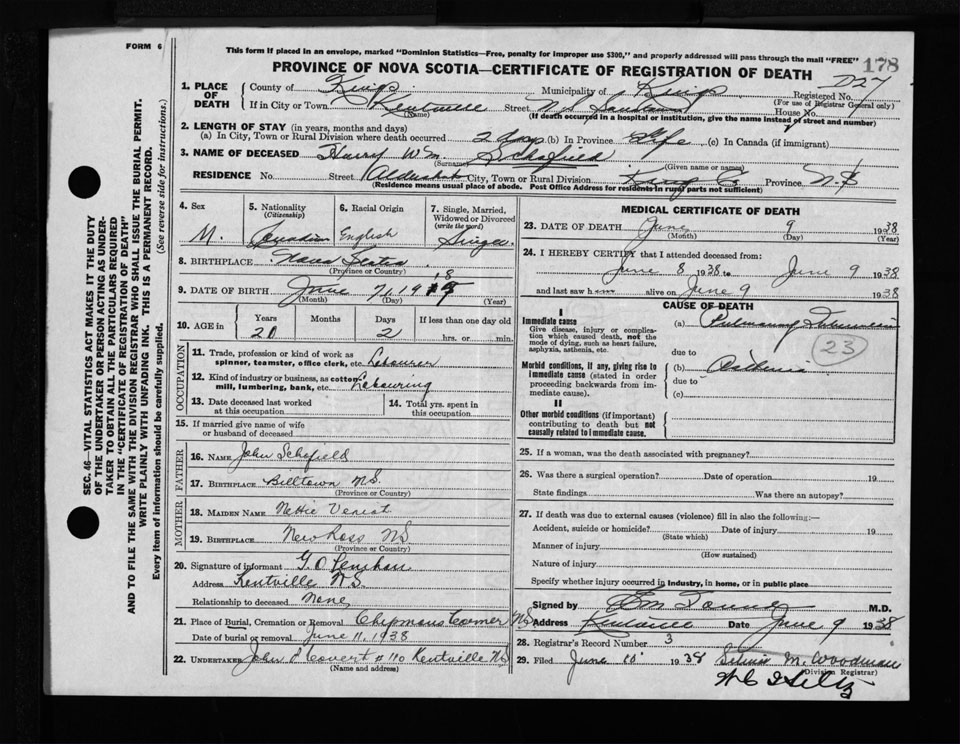 FORM 6
This form if placed in an envelope, marked "Dominion Statistics—Free, penalty for improper use $300," and properly addressed will pass through the mail "FREE"
178
PROVINCE OF NOVA SCOTIA—CERTIFICATE OF REGISTRATION OF DEATH
727
1. PLACE OF DEATH
County of Kings Municipality of Kings Registered No.
(For use of Registrar General only)
If in City or Town Kentville Street N S Sanatorium House No.
(Name) (If death occurred in a hospital or institution, give the name instead of street and number)
2. LENGTH OF STAY (in years, months and days)
(a) In City, Town or Rural Division where death occurred 2 days (b) In Province Life (c) In Canada (if immigrant)
3. NAME OF DECEASED Harry Wm. Schofield
(Surname) (Given name or names)
RESIDENCE No. Street Aldershot City, Town or Rural Division Kings Co Province N.S
(Residence means usual place of abode. Post Office Address for residents in rural parts not sufficient)
4. Sex M.
5. Nationality (Citizenship) Canadian
6. Racial Origin English
7. Single, Married, Widowed or Divorced (write the word) Single
8. BIRTHPLACE Nova Scotia
(Province or Country)
9. DATE OF BIRTH June 7 1918
(Month) (Day) (Year)
10. AGE in Years Months Days If less than one day old
20 2 hrs. or min.
OCCUPATION
11. Trade, profession or kind of work as spinner, teamster, office clerk, etc. Labourer
12. Kind of industry or business, as cotton mill, lumbering, bank, etc. Labouring
13. Date deceased last worked at this occupation
14. Total yrs. spent in this occupation
15. If married give name of wife or husband of deceased
FATHER
16. NAME John Schofield
17. BIRTHPLACE Billtown N.S.
(Province or Country)
MOTHER
18. MAIDEN NAME Nettie Veniot
19. BIRTHPLACE New Ross NS
(Province or Country)
20. Signature of informant G. O.
Address Kentville N.S.
Relationship to deceased None
21. Place of Burial, Cremation or Removal Chipmans Corner NS
Date of burial or removal June 11, 1938
22. UNDERTAKER John P Covert # 110 Kentville NS
(Name and address)
MEDICAL CERTIFICATE OF DEATH
23. DATE OF DEATH June 9 1938
(Month) (Day) (Year)
24. I HEREBY CERTIFY that I attended deceased from:
June 8 1938 to June 9 1938
and last saw h alive on June 9 1938
CAUSE OF DEATH
I
Immediate cause
Give disease, injury or complication which caused death, not the mode of dying, such as heart failure, asphyxia, asthenia, etc.
(a) Pulmonary Tuberculosis
due to
23
Morbid conditions, if any, giving rise to immediate cause (stated in order proceeding backwards from immediate cause).
(b) Asthenia
due to
(c)
II
Other morbid conditions (if important) contributing to death but not causally related to immediate cause.
25. If a woman, was the death associated with pregnancy?
26. Was there a surgical operation? Date of operation 19
State findings Was there an autopsy?
27. If death was due to external causes (violence) fill in also the following:—
Accident, suicide or homicide? Date of injury 19
(State which)
Manner of injury
(How sustained)
Nature of injury
Specify whether injury occurred in Industry, in home, or in public place
Signed by M.D.
Address Kentville Date June 9 1938
28. Registrar's Record Number 3
29. Filed June 10 1938 M. Woodman
(Division Registrar)
SEC. 46—VITAL STATISTICS ACT MAKES IT THE DUTY
OF THE UNDERTAKER OR PERSON ACTING AS UNDER-
TAKER TO OBTAIN ALL THE PARTICULARS REQUIRED
IN THE "CERTIFICATE OF REGISTRATION OF DEATH"
AND TO FILE THE SAME WITH THE DIVISION REGISTRAR WHO SHALL ISSUE THE BURIAL PERMIT.
WRITE PLAINLY WITH UNFADING INK. THIS IS A PERMANENT RECORD.
Every item of information should be carefully supplied. (See reverse side for instructions.)